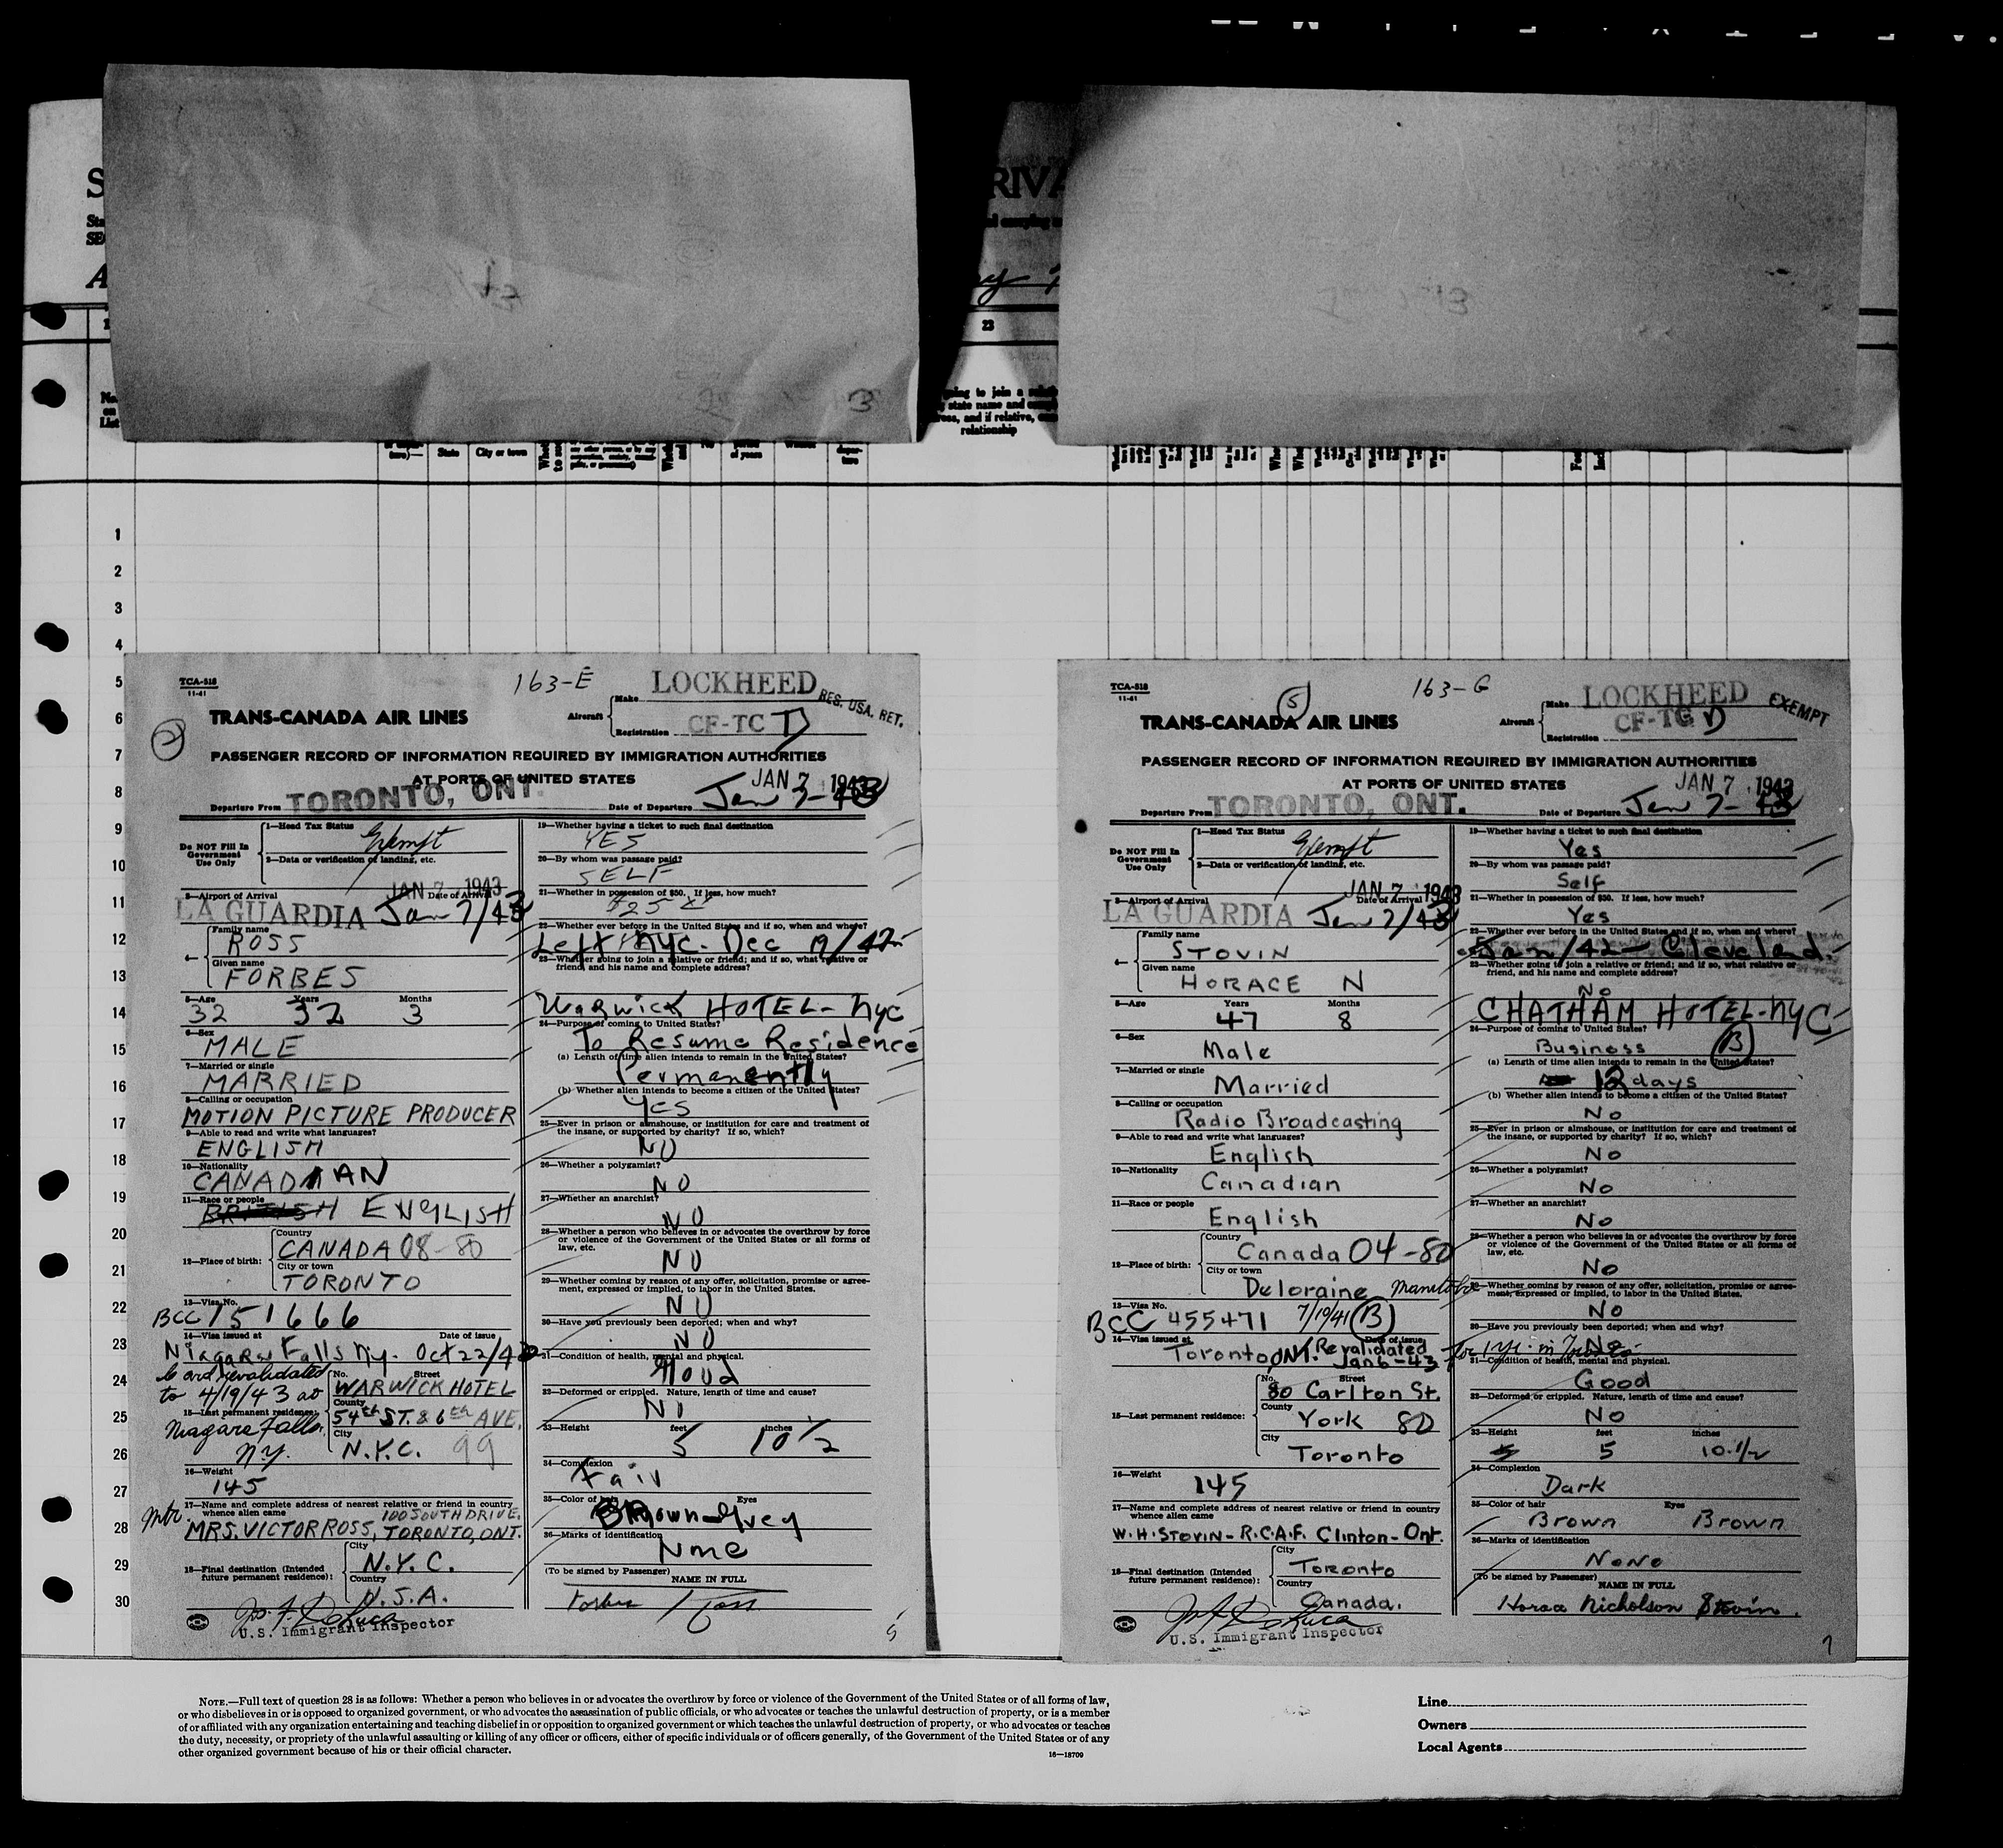 RIVA
23
relationship
State
City or town
1
2
3
4
5
6
7
8
9
10
11
12
13
14
15
16
17
18
19
20
21
22
23
24
25
26
27
28
29
30
TCA-518
11-41
163-E
LOCKHEED
RES. USA. RET.
2
TRANS-CANADA AIR LINES
Aircraft
Make
Registration
CF-TC D
PASSENGER RECORD OF INFORMATION REQUIRED BY IMMIGRATION AUTHORITIES
AT PORTS OF UNITED STATES
JAN 7 1943
Departure From TORONTO, ONT.
Date of Departure Jan 7-43
Do NOT Fill In Government Use Only
1—Head Tax Status
Exempt
2—Data or verification of landing, etc.
3—Airport of Arrival
Date of Arrival
JAN 7 1943
LA GUARDIA Jan 7/43
4—
Family name
ROSS
Given name
FORBES
5—Age Years Months
32 32 3
6—Sex
MALE
7—Married or single
MARRIED
8—Calling or occupation
MOTION PICTURE PRODUCER
9—Able to read and write what languages?
ENGLISH
10—Nationality
CANADIAN
11—Race or people
BRITISH ENGLISH
12—Place of birth:
Country
CANADA 08-80
City or town
TORONTO
13—Visa No.
BCC 151666
14—Visa issued at Date of issue
Niagara Falls Ny. Oct 22/42
Card revalidated
to 4/19/43 at
Niagara Falls,
N.Y.
15—Last permanent residence:
No. Street
WARWICK HOTEL
County
54th ST. & 6th AVE.
City
N.Y.C. 99
16—Weight
145
17—Name and complete address of nearest relative or friend in country whence alien came
100 SOUTH DRIVE.
mtr. MRS. VICTOR ROSS, TORONTO, ONT.
18—Final destination (Intended future permanent residence):
City
N.Y.C.
Country
U.S.A.
U.S. Immigrant Inspector
19—Whether having a ticket to such final destination
YES
20—By whom was passage paid?
SELF
21—Whether in possession of $50. If less, how much?
$25
22—Whether ever before in the United States and if so, when and where?
Left NYC. Dec 19/42
23—Whether going to join a relative or friend; and if so, what relative or friend, and his name and complete address?
Warwick HOTEL - NYC
24—Purpose of coming to United States?
To Resume Residence
(a) Length of time alien intends to remain in the United States?
Permanently
(b) Whether alien intends to become a citizen of the United States?
Yes
25—Ever in prison or almshouse, or institution for care and treatment of the insane, or supported by charity? If so, which?
NO
26—Whether a polygamist?
NO
27—Whether an anarchist?
NO
28—Whether a person who believes in or advocates the overthrow by force or violence of the Government of the United States or all forms of law, etc.
NO
29—Whether coming by reason of any offer, solicitation, promise or agreement, expressed or implied, to labor in the United States.
NO
30—Have you previously been deported; when and why?
NO
31—Condition of health, mental and physical.
Good
32—Deformed or crippled. Nature, length of time and cause?
No
33—Height feet inches
5 10 1/2
34—Complexion
Fair
35—Color of hair Eyes
Brown Grey
36—Marks of identification
None
(To be signed by Passenger)
NAME IN FULL
Forbes Ross
TCA-518
11-41
5
163-G
LOCKHEED
EXEMPT
TRANS-CANADA AIR LINES
Aircraft
Make
Registration
CF-TC D
PASSENGER RECORD OF INFORMATION REQUIRED BY IMMIGRATION AUTHORITIES
AT PORTS OF UNITED STATES
JAN 7 1943
Departure From TORONTO, ONT.
Date of Departure Jan 7-43
Do NOT Fill In Government Use Only
1—Head Tax Status
Exempt
2—Data or verification of landing, etc.
3—Airport of Arrival
Date of Arrival
JAN 7 1943
LA GUARDIA Jan 7/43
4—
Family name
STOVIN
Given name
HORACE N
5—Age Years Months
47 8
6—Sex
Male
7—Married or single
Married
8—Calling or occupation
Radio Broadcasting
9—Able to read and write what languages?
English
10—Nationality
Canadian
11—Race or people
English
12—Place of birth:
Country
Canada 04-80
City or town
Deloraine Manitoba
13—Visa No.
BCC 455471 7/19/41 B
14—Visa issued at Date of issue
Toronto, ONT. Revalidated
Jan 6-43 for 1 yr. in Toronto
15—Last permanent residence:
No. Street
80 Carlton St.
County
York 80
City
Toronto
16—Weight
145
17—Name and complete address of nearest relative or friend in country whence alien came
W.H. STOVIN - R.C.A.F. Clinton - Ont.
18—Final destination (Intended future permanent residence):
City
Toronto
Country
Canada.
U.S. Immigrant Inspector
19—Whether having a ticket to such final destination
Yes
20—By whom was passage paid?
Self
21—Whether in possession of $50. If less, how much?
Yes
22—Whether ever before in the United States and if so, when and where?
Jan/42 - Cleveland.
23—Whether going to join a relative or friend; and if so, what relative or friend, and his name and complete address?
No
CHATHAM HOTEL - NYC
24—Purpose of coming to United States?
Business B
(a) Length of time alien intends to remain in the United States?
12 days
(b) Whether alien intends to become a citizen of the United States?
No
25—Ever in prison or almshouse, or institution for care and treatment of the insane, or supported by charity? If so, which?
No
26—Whether a polygamist?
No
27—Whether an anarchist?
No
28—Whether a person who believes in or advocates the overthrow by force or violence of the Government of the United States or all forms of law, etc.
No
29—Whether coming by reason of any offer, solicitation, promise or agreement, expressed or implied, to labor in the United States.
No
30—Have you previously been deported; when and why?
No
31—Condition of health, mental and physical.
Good
32—Deformed or crippled. Nature, length of time and cause?
No
33—Height feet inches
5 10-1/2
34—Complexion
Dark
35—Color of hair Eyes
Brown Brown
36—Marks of identification
None
(To be signed by Passenger)
NAME IN FULL
Horace Nicholson Stovin.
NOTE.—Full text of question 28 is as follows: Whether a person who believes in or advocates the overthrow by force or violence of the Government of the United States or of all forms of law,
or who disbelieves in or is opposed to organized government, or who advocates the assassination of public officials, or who advocates or teaches the unlawful destruction of property, or is a member
of or affiliated with any organization entertaining and teaching disbelief in or opposition to organized government or which teaches the unlawful destruction of property, or who advocates or teaches
the duty, necessity, or propriety of the unlawful assaulting or killing of any officer or officers, either of specific individuals or of officers generally, of the Government of the United States or of any
other organized government because of his or their official character.
16—18709
Line
Owners
Local Agents